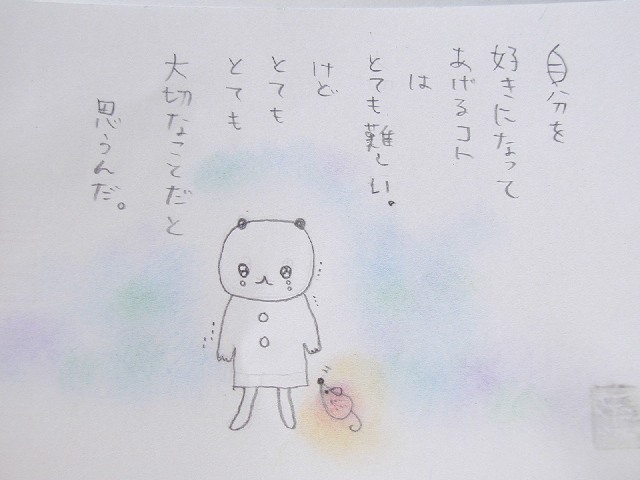 自分を
好きになって
あげるコト
は
とても難しい。
けど
とても
とても
大切なことだと
思うんだ。